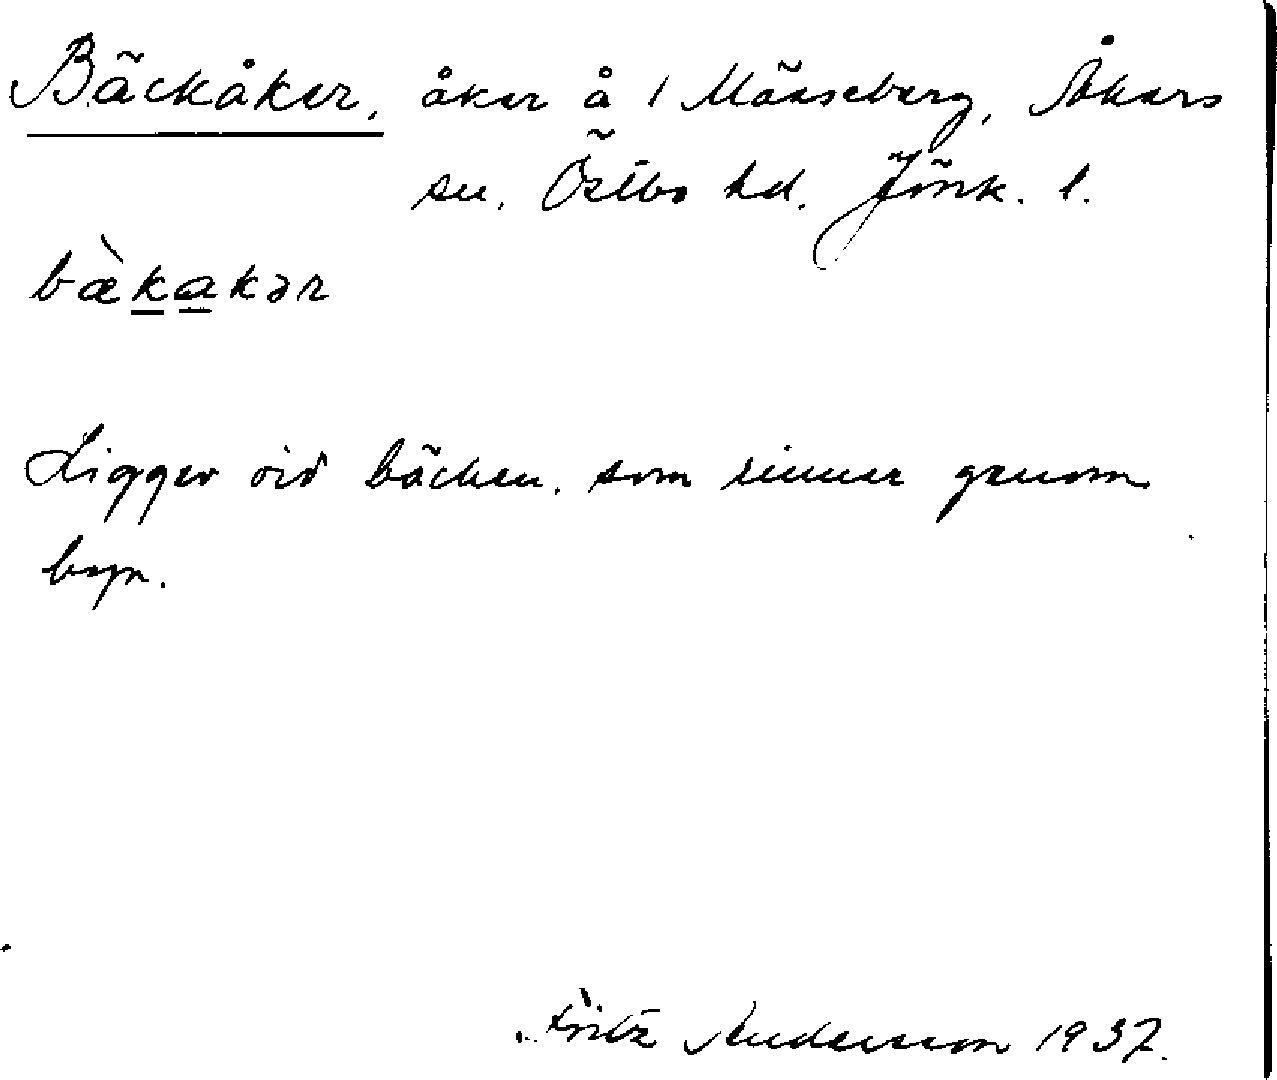 Bäckåker, åker å 1 Månseberg, Åkers
sn. Östbo hd. Jönk. l.
bæ̀kakər
Ligger vid bäcken. som rinner genom
byn.
Fritz Andersson 1937.